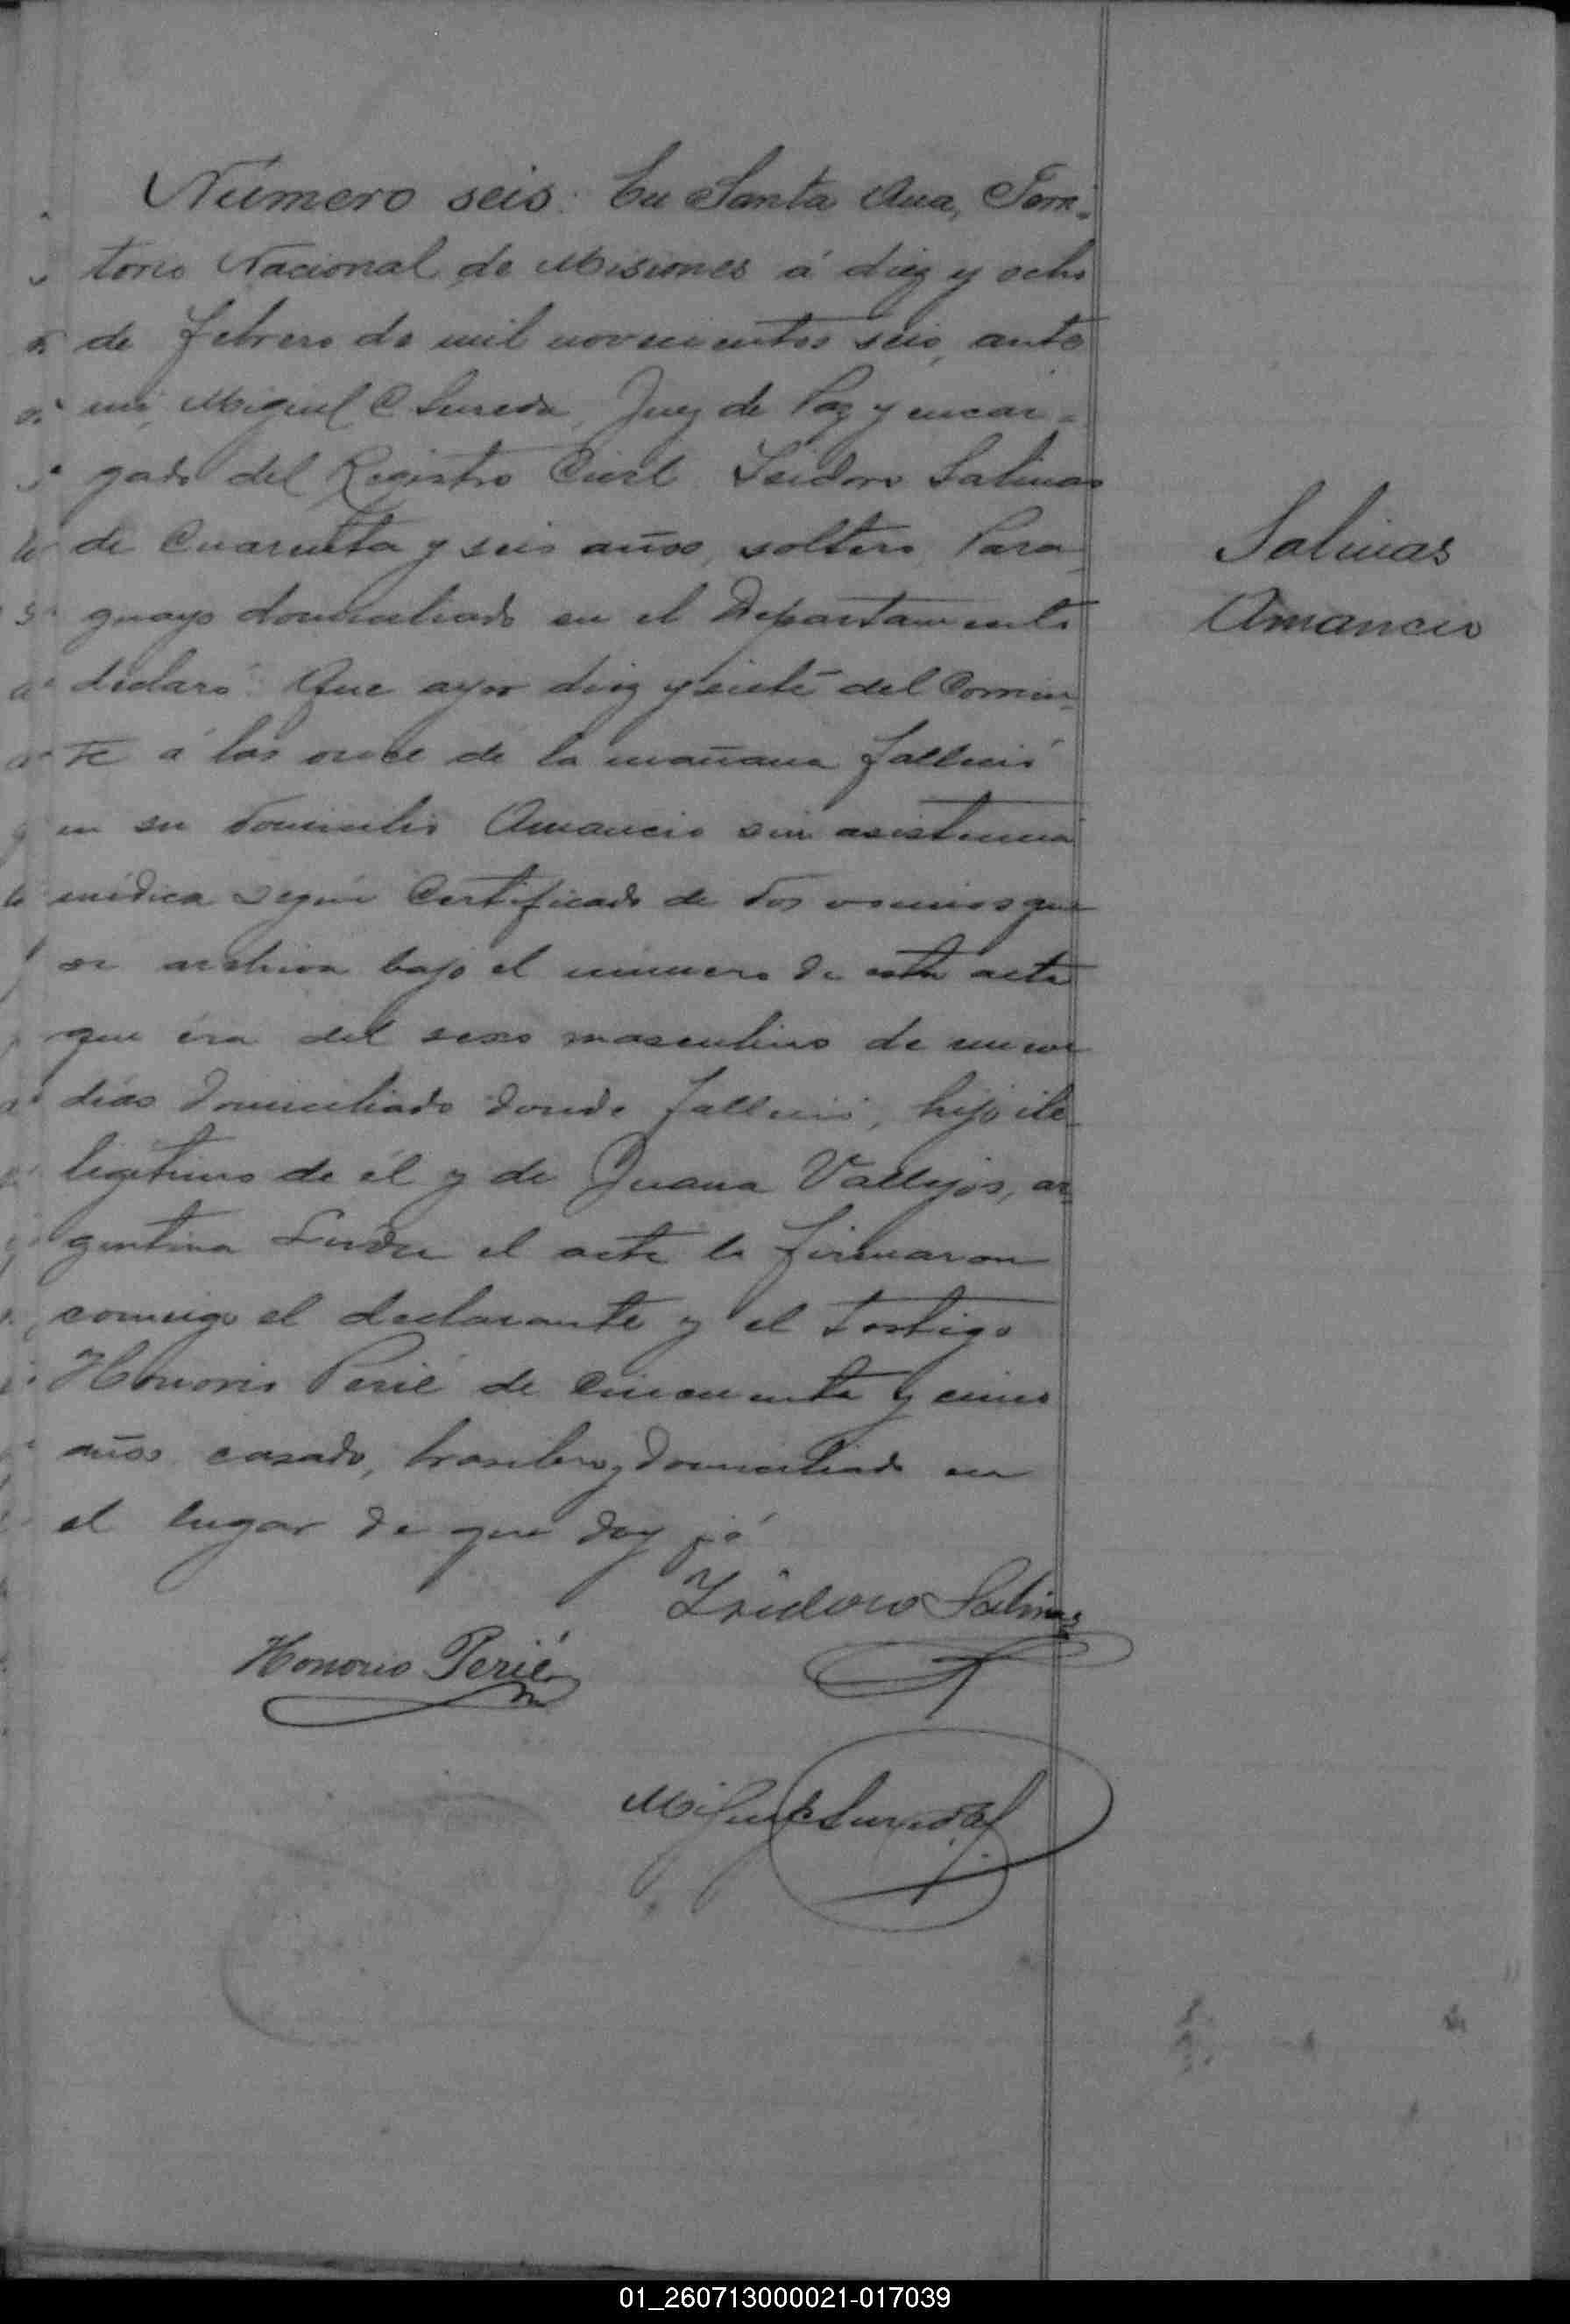 Número seis: En Santa Ana, Terri-
torio Nacional de Misiones á diez y ocho
de febrero de mil novecientos seis, ante
mi, Miguel C Sureda, Juez de Paz y encar-
gado del Registro Civil Isidoro Salinas
de Cuarenta y seis años, soltero, Para-
guayo domiciliado en el Departamento
declaró: Que ayer diez y siete del Corrien-
te á las once de la mañana falleció
en su domicilio Amancio sin asistencia
médica según Certificado de dos vecinos que
se archiva bajo el numero de esta acta
que éra del sexo masculino de nueve
días domiciliado donde falleció, hijo ile-
legitimo de él y de Juana Vallejos, ar-
gentina Leida el acta la firmaron
conmigo el declarante y el testigo
Honorio Perié de Cincuenta y cinco
años casado, brasilero, domiciliado en
el lugar de que doy fé
Isidoro Salinas
Honorio Perié
Miguel C Sureda
Salinas
Amancio
01_260713000021-017039